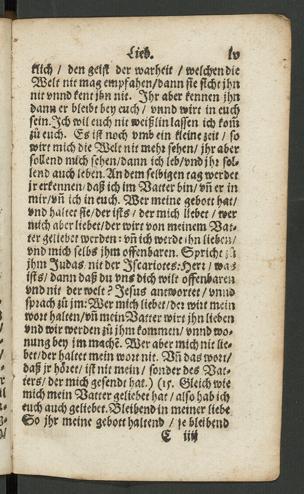 Lieb. lv
klich / den geist der warheit / welchen die
Welt nit mag empfahen / dann sie sicht jhn
nit vnnd kent jhn nit. Jhr aber kennen jhn
dann er bleibt bey euch / vnnd wirt in euch
sein. Jch wil euch nit weißlin lassen ich kom̃
zů euch. Es ist noch vmb ein kleine zeit / so
wirt mich die Welt nit mehr sehen / jhr aber
sollend mich sehen / dann ich leb / vnd jhr sol-
lend auch leben. An dem selbigen tag werdet
jr erkennen / daß ich im Vatter bin / vñ er in
mir / vñ ich in euch. Wer meine gebott hat /
vnd haltet sie / der ists / der mich liebet / wer
mich aber liebet / der wirt von meinem Vat-
ter geliebet werden: vñ ich werde ihn lieben /
vnd mich selbs jhm offenbaren. Spricht zů
jhm Judas nit der Jscariotes: Herr / was
ists / dann daß du vns dich wilt offenbaren
vnd nit der welt? Jesus antwortet / vnnd
sprach zů jm: Wer mich liebet / der wirt mein
wort halten / vñ mein Vatter wirt jhn lieben
vnd wir werden zů jhm kommen / vnnd wo-
nung bey im machẽ. Wer aber mich nit lie-
bet / der haltet mein wort nit. Vñ das wort /
daß jr höret / ist nit mein / sonder des Vat-
ters / der mich gesendt hat.) (15. Gleich wie
mich mein Vatter geliebet hat / also hab ich
euch auch geliebet. Bleibend in meiner liebe
So jhr meine gebott haltend / je bleibend
C iiij